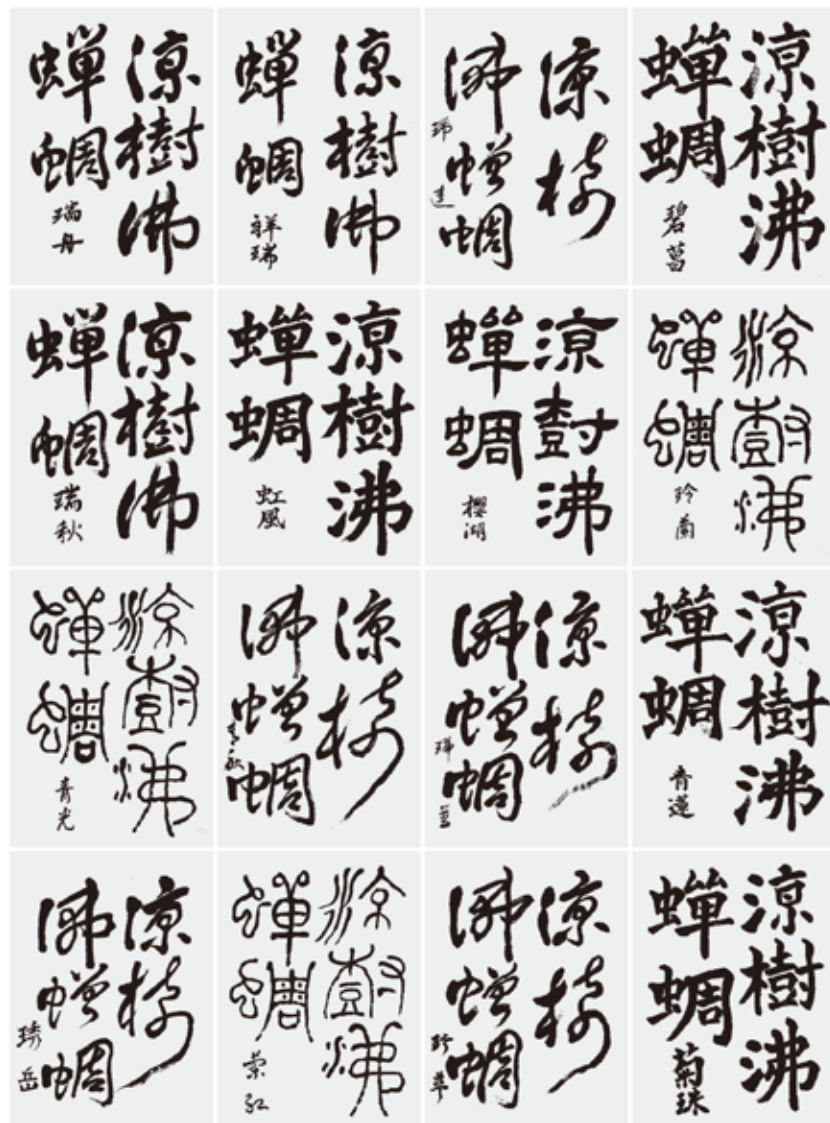 涼樹沸
蝉蜩
瑞丹
涼樹沸
蝉蜩
祥瑞
涼樹
沸蝉蜩
涼樹沸
蟬蜩
碧菖
涼樹沸
蝉蜩
瑞秋
涼樹沸
蝉蜩
虹風
涼樹沸
蟬蜩
櫻湖
涼樹沸
蟬蜩
玲蘭
涼樹沸
蟬蜩
青光
涼樹
沸蝉蜩
涼樹
沸蝉蜩
涼樹沸
蟬蜩
青蓮
涼樹
沸蝉蜩
涼樹沸
蟬蜩
涼樹
沸蝉蜩
珍華
涼樹沸
蟬蜩
菊珠